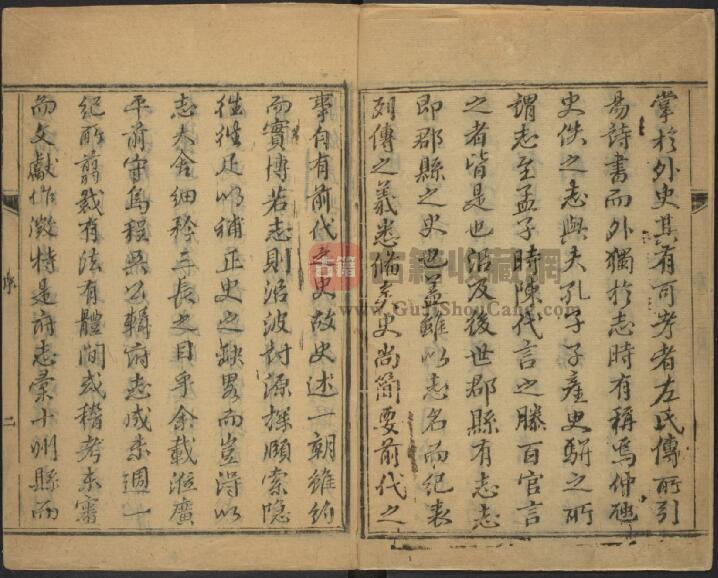 掌於外史其有可考者左氏傳所引
易詩書而外獨於志時有稱焉仲虺
史佚之志與夫孔子子產史駢之所
謂志至孟子時陳代言之滕百官言
之者皆是也沿及後世郡縣有志志
即郡縣之史也蓋雖以志名而紀表
列傳之義悉備矣史尚簡要前代之
事自有前代之史故史述一朝雖約
而實博若志則沿波討源探賾索隐
往往足以補正史之缺畧而豈得以
志大舍細矜三長之目乎余載蒞廣
平前守烏程吳公輯府志成未週一
紀所剪裁有法有體間或稽考未審
而文獻作徵特是府志彙十州縣而
序
二
古籍收藏網
www.GuJiShouCang.com